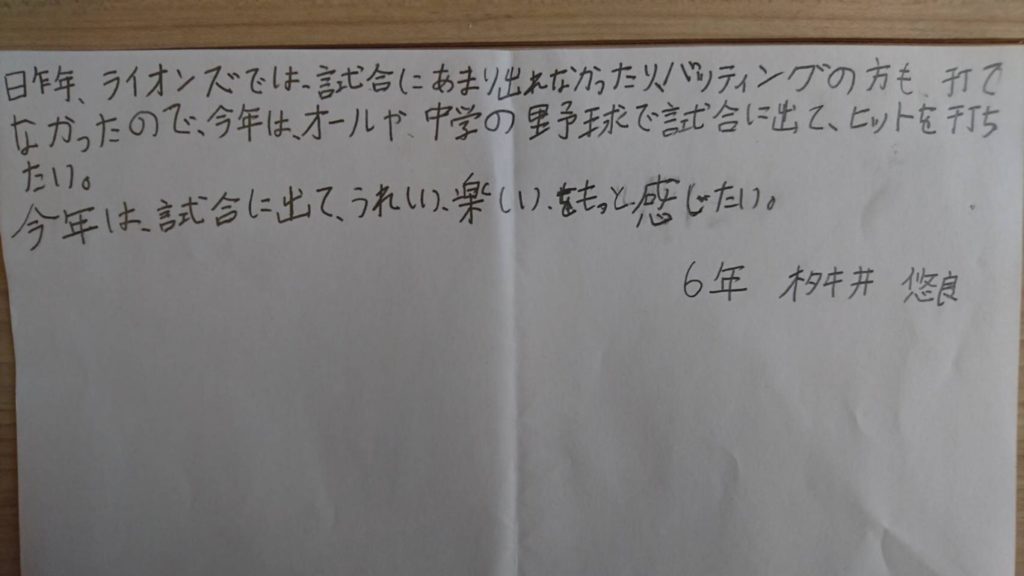 昨年、ライオンズでは、試合にあまり出れなかったり、バッティングの方も、打て
なかったので、今年は、オールや、中学の野球で試合に出て、ヒットを打ち
たい。
今年は、試合に出て、うれしい、楽しい、をもっと感じたい。
6年 桝井 悠良